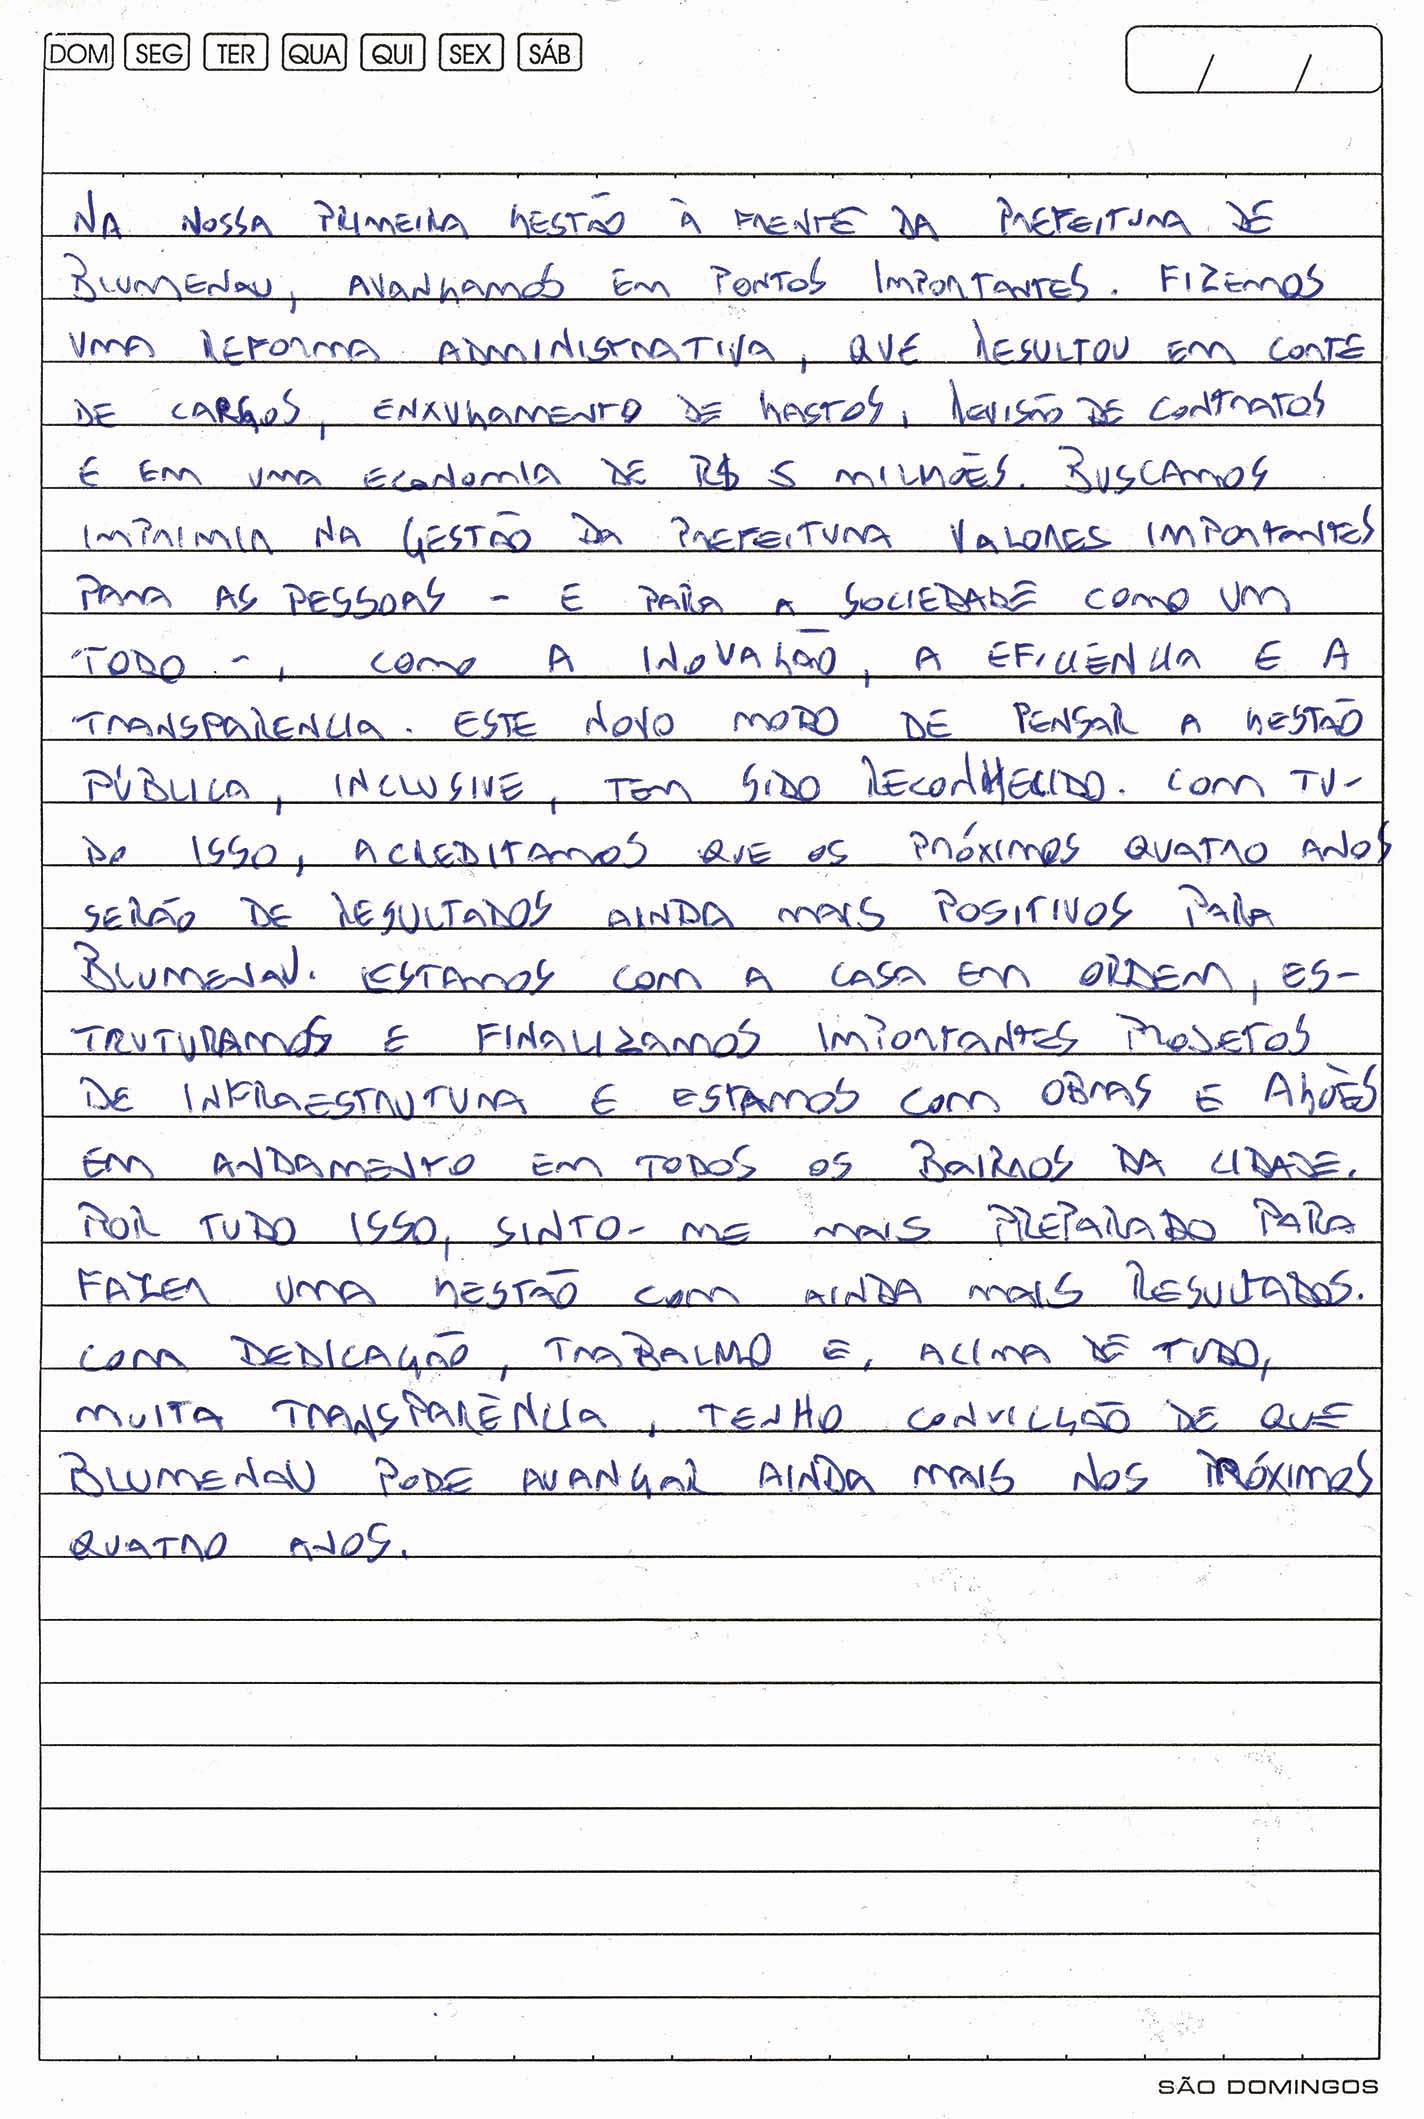 DOM SEG TER QUA QUI SEX SÁB / /
NA NOSSA PRIMEIRA GESTÃO À FRENTE DA PREFEITURA DE
BLUMENAU, AVANÇAMOS EM PONTOS IMPORTANTES. FIZEMOS
UMA REFORMA ADMINISTRATIVA, QUE RESULTOU EM CORTE
DE CARGOS, ENXUGAMENTO DE GASTOS, REVISÃO DE CONTRATOS
E EM UMA ECONOMIA DE R$ 5 MILHÕES. BUSCAMOS
IMPRIMIR NA GESTÃO DA PREFEITURA VALORES IMPORTANTES
PARA AS PESSOAS - E PARA A SOCIEDADE COMO UM
TODO -, COMO A INOVAÇÃO, A EFICIÊNCIA E A
TRANSPARENCIA. ESTE NOVO MODO DE PENSAR A GESTÃO
PÚBLICA, INCLUSIVE, TEM SIDO RECONHECIDO. COM TU-
DO ISSO, ACREDITAMOS QUE OS PRÓXIMOS QUATRO ANOS
SERÃO DE RESULTADOS AINDA MAIS POSITIVOS PARA
BLUMENAU. ESTAMOS COM A CASA EM ORDEM, ES-
TRUTURAMOS E FINALIZAMOS IMPORTANTES PROJETOS
DE INFRAESTRUTURA E ESTAMOS COM OBRAS E AÇÕES
EM ANDAMENTO EM TODOS OS BAIRROS DA CIDADE.
POR TUDO ISSO, SINTO-ME MAIS PREPARADO PARA
FAZER UMA GESTÃO COM AINDA MAIS RESULTADOS.
COM DEDICAÇÃO, TRABALHO E, ACIMA DE TUDO,
MUITA TRANSPARÊNCIA, TENHO CONVICÇÃO DE QUE
BLUMENAU PODE AVANÇAR AINDA MAIS NOS PRÓXIMOS
QUATRO ANOS.
SÃO DOMINGOS